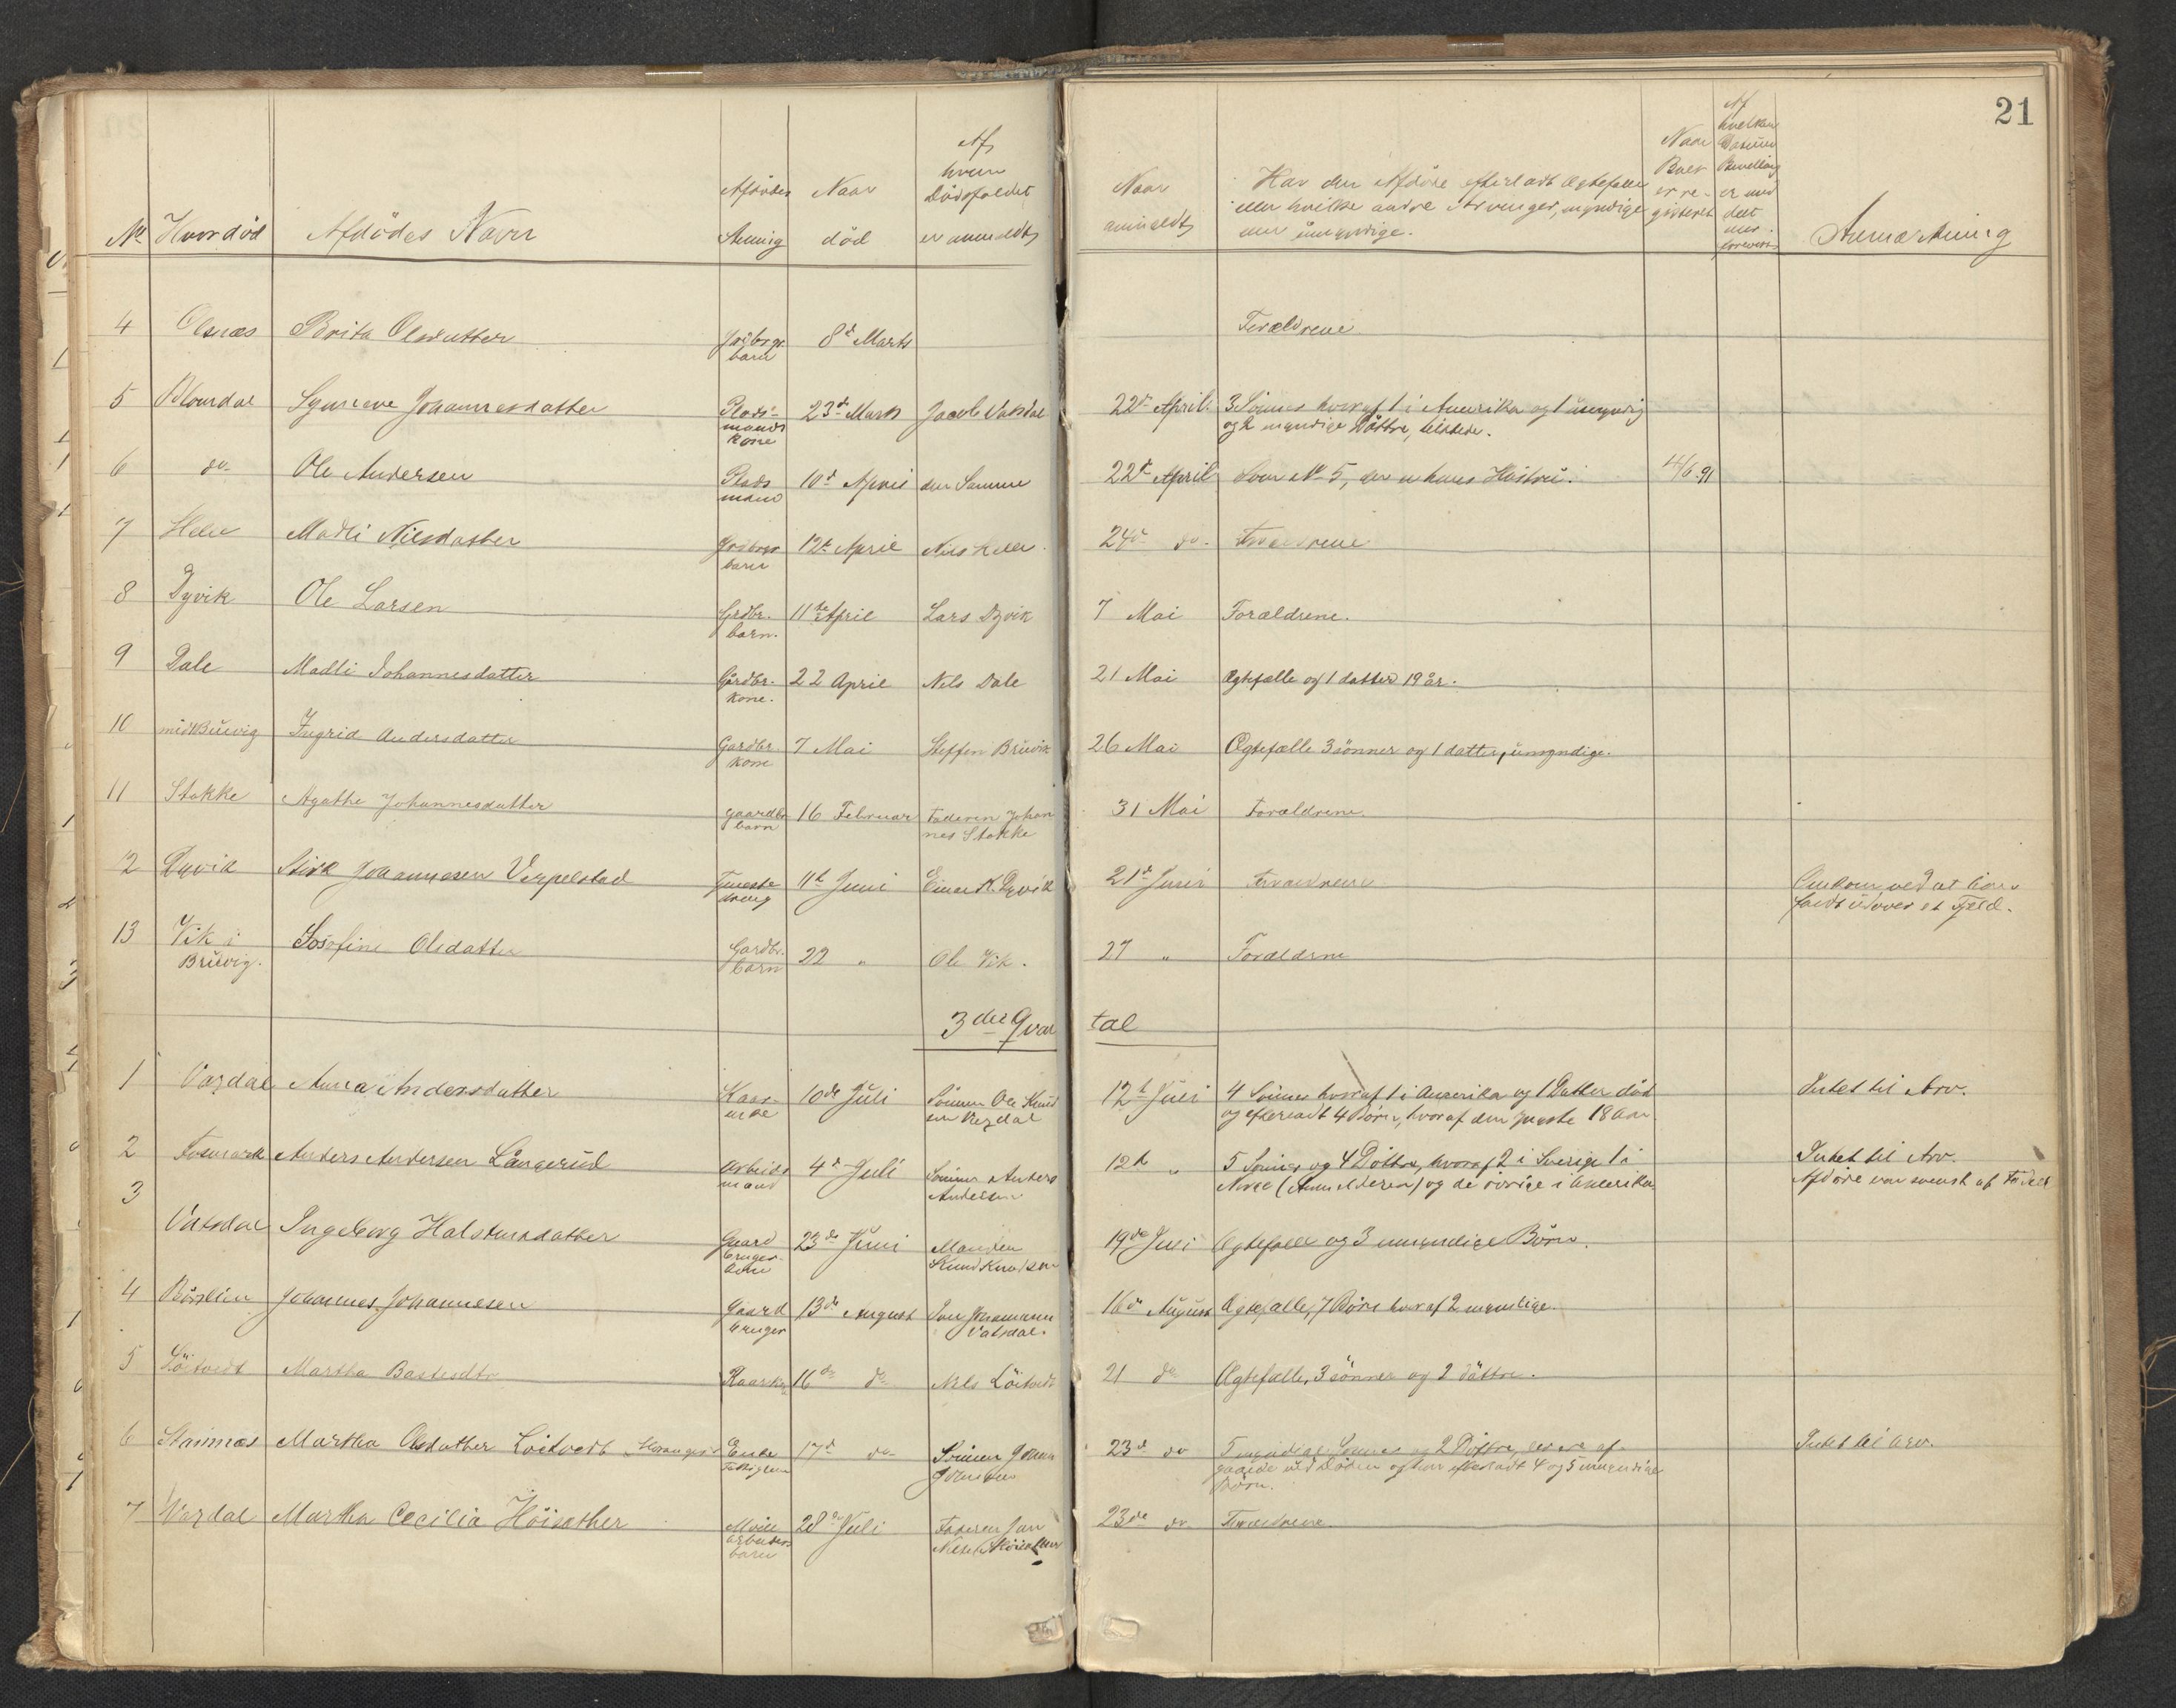 21
No Hvor død Afdødes Navn Afdødes Stilling Naar død Af hvem Dødsfaldet er anmeldt Naar anmeldt Har den Afdøde efterladt Ægtefælle eller hvilke andre Arvinger, myndige eller umyndige. Naar Boet er registeret Af hvilken Datum Bevilling er med delt Anmærkning
4 Olsnæs Brita Olsdatter Grdbrgr. barn 8d Marts Forældrene
5 Blomdal Synneve Johannesdatter Plads- mands kone 23d Marts Jacob Vatsdal 22d April. 3 Sönner hvoraf 1 i Amerika og 1 umyndig
og 2 myndige Döttre,
6 do Ole Andersen Plads mand 10d April den Samme 22d April Som No 5, der er hans Hustru. 4/6 91
7 Helle Madli Nilsdatter Grdbrgr barn 12t April Nils Helle 24d do. Forældrene
8 Dyvik Ole Larsen Grdbr. barn. 11te April Lars Dyvik 7 Mai Forældrene.
9 Dale Madli Johannesdatter Gårdbr. kone. 22 April Nels Dale 21 Mai Ægtefælle og 1 datter 19 år.
10 midtBruvig Ingrid Andersdatter Gardbr. kone 7 Mai Steffen Bruvik 26 Mai Ægtefælle 3 sönner og 1 datter, umyndige.
11 Stokke Agathe Johannesdatter gaardbr. barn 16 Februar Faderen Johan
nes Stokke 31 Mai Forældrene.
12 Dyvik Johannesen Veppelstad Tjeneste dreng 11t Juni Einar K. Dyvik 21d Juni Forældrene Omkom ved at
faldt udover et Fjeld.
13 Vik i Bruvig. Josefine Olsdatter Gardbr. barn 22 " Ole Vik. 27 " Forældrene
3die Qvar tal
1 Vaxdal Anna Andersdatter Kaar- enke 10de Juli Sönnen Ole Knud
sen Vaxdal 12t Juli 4 Sönner hvoraf 1 i Amerika og 1 Datter död
og efterladt 4 Börn, hvoraf den yngste 18 Aar Intet til Arv.
2 Fosmark Anders Andersen Långerud arbeids mand 4d Juli Sönnen Anders
Andersen 12t " 5 Sönner og 4 Döttre, hvoraf 2 i Sverige 1 i
Norge (Anmelderen) og de övrige i Amerika Intet til Arv.
Afdöde var svensk af Födsel
3 Vatsdal Ingeborg Halsteinsdatter Gaard bruger kone 23de Juni Manden
Knud Knudsen 19de Juli Ægtefælle og 3 umyndige Börn.
4 Johannes Johannesen Gaard bruger 13de August Johannesen
Vatsdal. 16de August Ægtefælle, 7 Börn hvoraf 2 myndige.
5 Löitvedt Martha Bastesdtr Kaark. 16de do Nels Löitvedt 21 do Ægtefælle, 3 sönner og 2 döttre.
6 Stamnæs Martha Olsdatter Löitvedt Enke 17d do Sönnen Johan
Johnsen 23d do 5 myndige Sönner og 2 Döttre, af-
gaaede ved Döden og har efterladt 4 og 5 umyndige
Börn. Intet til Arv.
7 Vaxdal Martha Cecilia Höisæther Mölle arbeiders barn 28d Juli Faderen Jan
Nilsen Höisæther 23de do Forældrene.